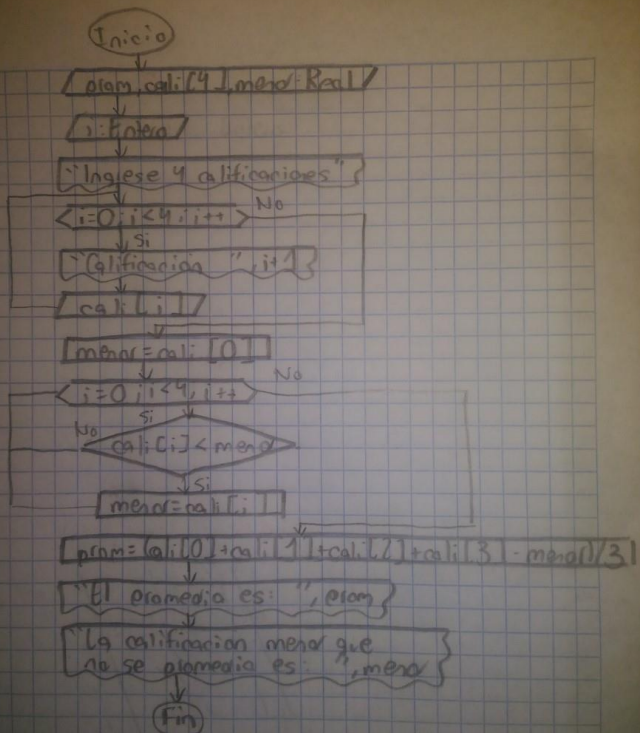 Inicio
prom, cali[4], menor: Real
i: Entero
"Ingrese 4 calificaciones"
i=0; i<4; i++ No
Si
"Calificacion ", i+1
cali[i]
menor=cali[0]
No
i=0; i<4; i++
Si
No
cali[i]<menor
Si
menor=cali[i]
prom=(cali[0]+cali[1]+cali[2]+cali[3]-menor)/3
"El promedio es: ", prom
"La calificacion menor que
no se promedio es: ", menor
Fin